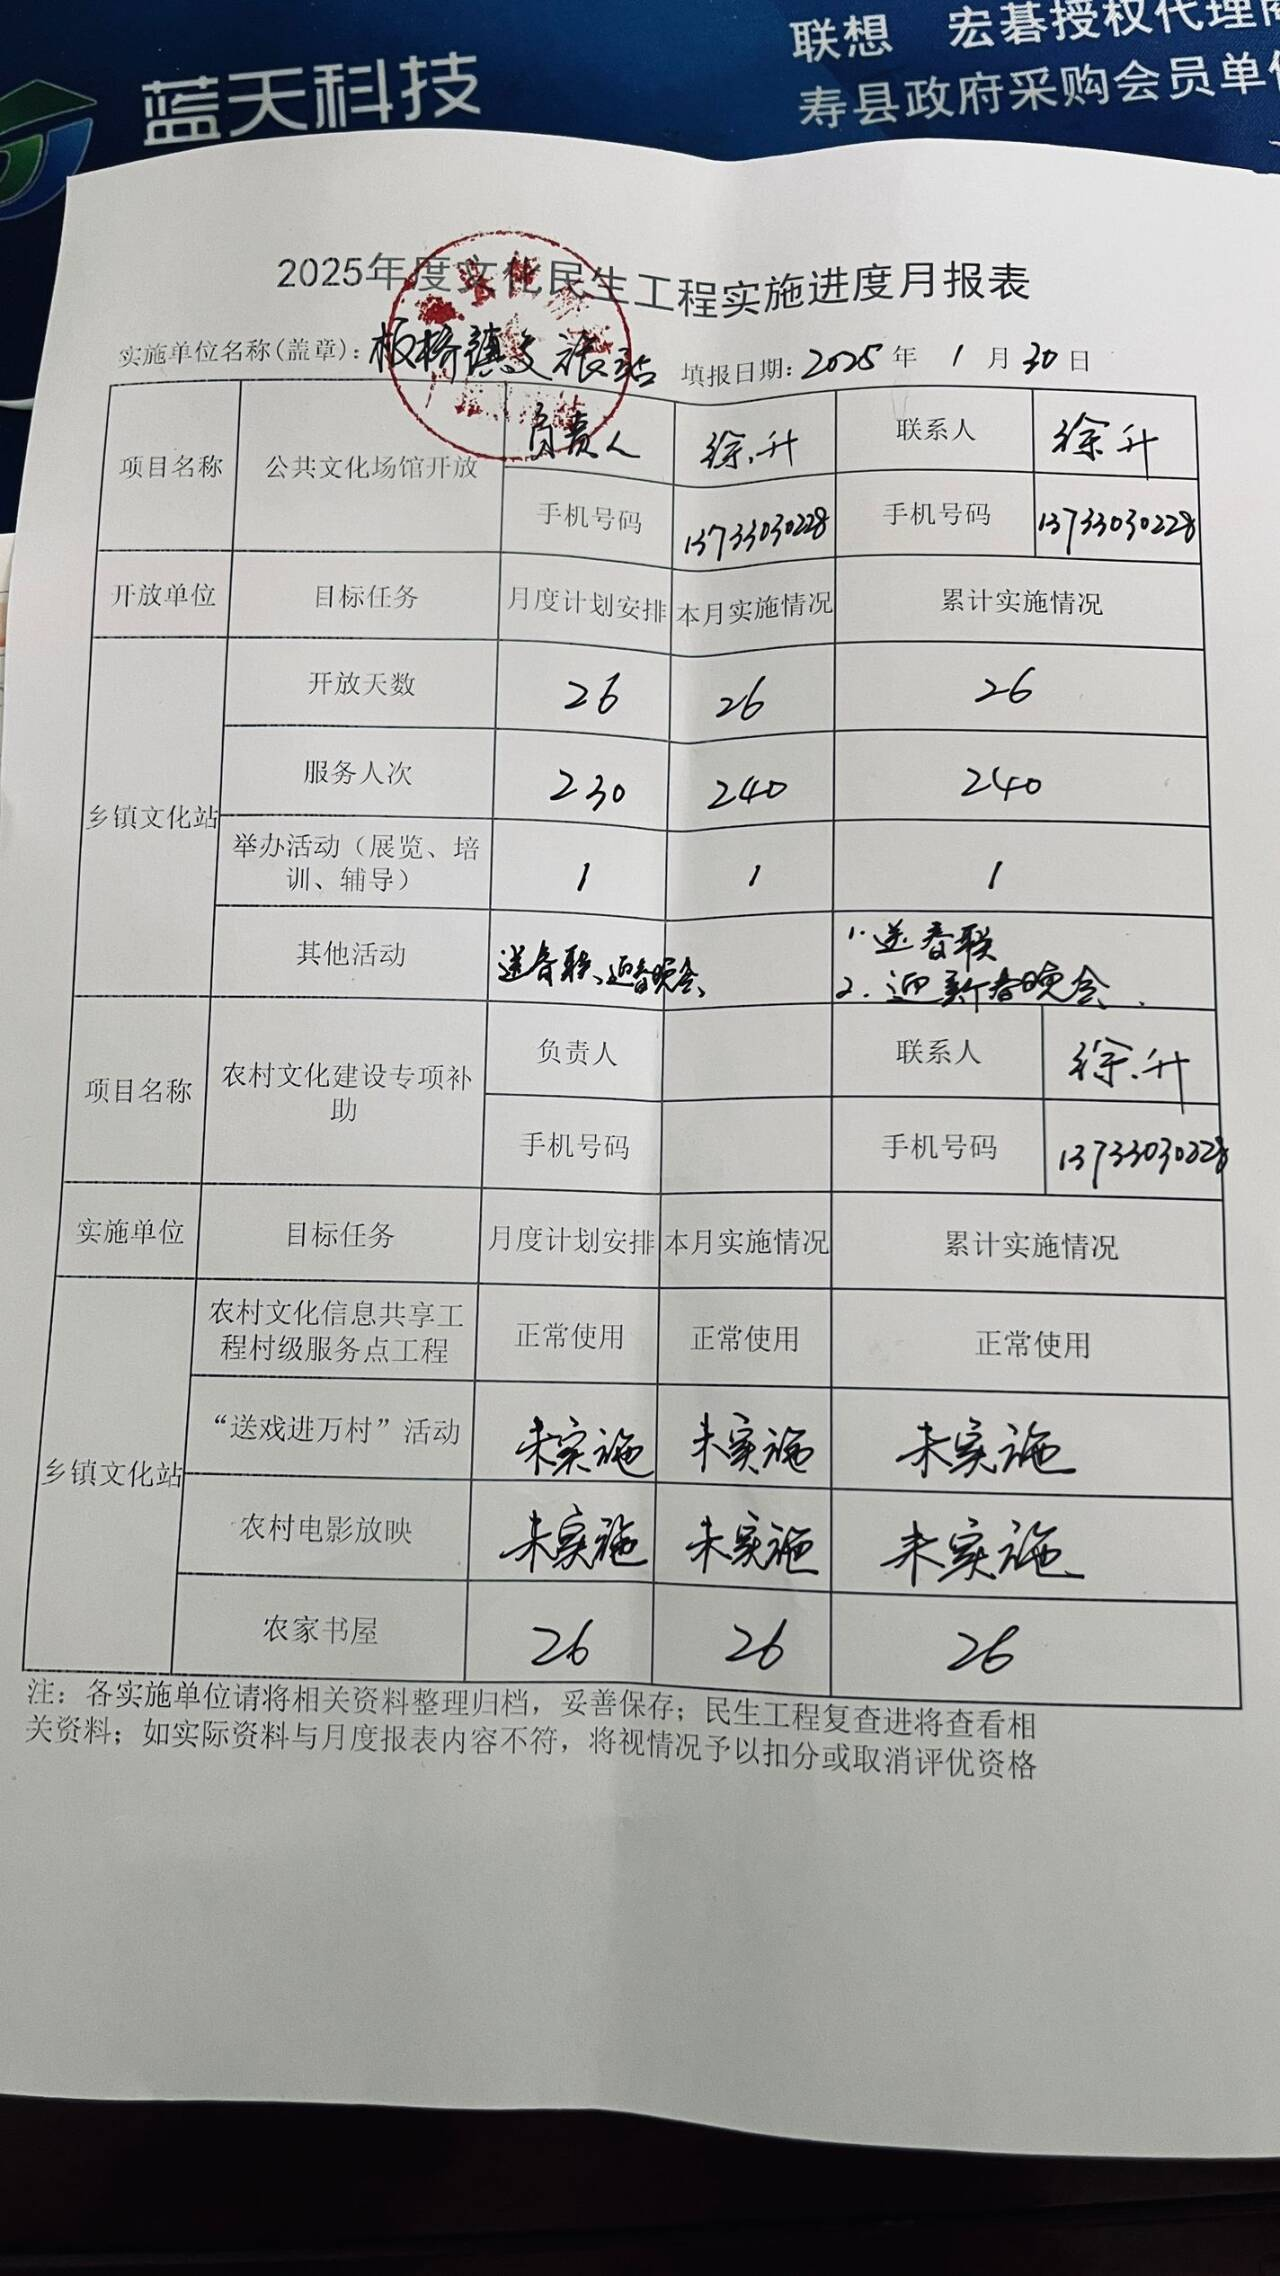 蓝天科技
联想 宏碁授权代理商
寿县政府采购会员单位
2025年度文化民生工程实施进度月报表
实施单位名称(盖章): 板桥镇文旅站 填报日期: 2025 年 1 月 30 日
项目名称 公共文化场馆开放 负责人 徐升 联系人 徐升
手机号码 13733030228 手机号码 13733030228
开放单位 目标任务 月度计划安排 本月实施情况 累计实施情况
乡镇文化站
开放天数 26 26 26
服务人次 230 240 240
举办活动（展览、培
训、辅导） 1 1 1
其他活动 送春联、迎春晚会、 1.送春联
2.迎新春晚会.
项目名称 农村文化建设专项补
助
负责人 联系人 徐升
手机号码 手机号码 13733030228
实施单位 目标任务 月度计划安排 本月实施情况 累计实施情况
乡镇文化站
农村文化信息共享工
程村级服务点工程 正常使用 正常使用 正常使用
“送戏进万村”活动 未实施 未实施 未实施
农村电影放映 未实施 未实施 未实施
农家书屋 26 26 26
注：各实施单位请将相关资料整理归档，妥善保存；民生工程复查进将查看相
关资料；如实际资料与月度报表内容不符，将视情况予以扣分或取消评优资格